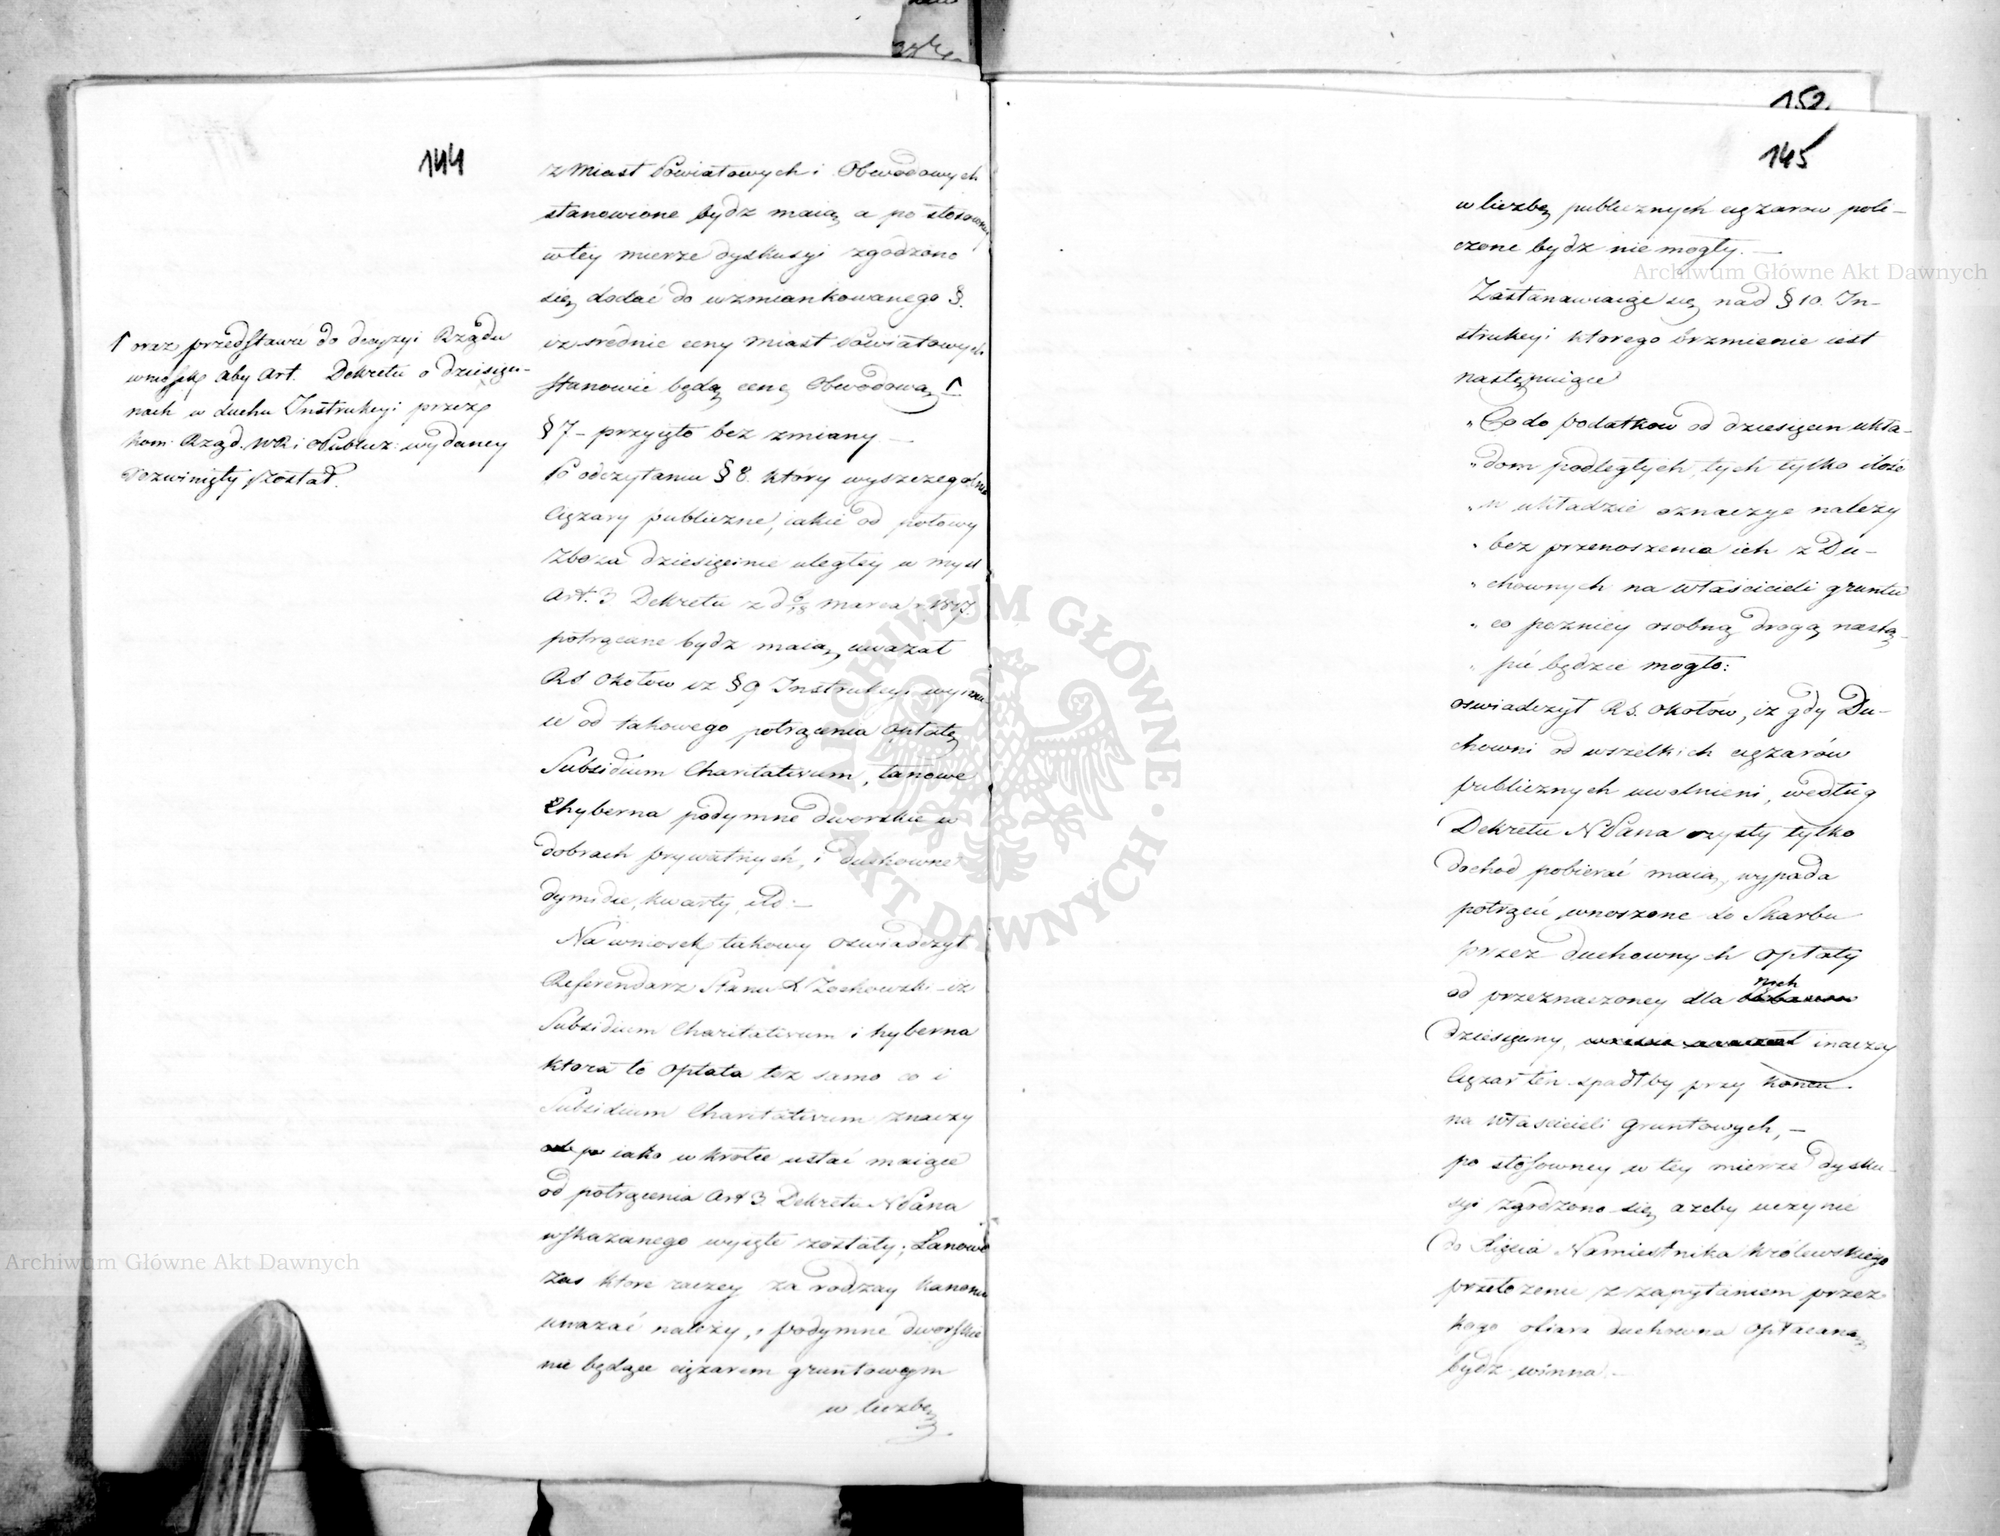 144
z Miast Powiatowych i Obwodowych
stanowione bydz maią, a po stosowney
w tey mierze dyskusyi zgodzono
się dodać do wzmiankowanego §.
iż srednie ceny Miast Powiatowych
stanowić będą cenę Obwodową ↑
↑ oraz przedstawić do decyzyi Rządu
wniosek aby Art. Dekretu o dziesięci-
nach w duchu Instrukcyi przez
Kom: Rząd. WR. i OPubliz: wydaney
rozwinięty został.
§ 7 – przyięto bez zmiany –
Po odczytaniu § 8. który wyszczegolnia
Ciężary publiczne, iakie od połowy
zboża dziesięcinie uległey w mysl
Art. 3 Dekretu z d 6/18 Marca r. 1817.
potrącane bydz maią, uwazał
RS Okołow iż § 9 Instrukcyi wyimu-
ie od takowego potrącenia opłatę
Subsidium Charitativum, łanowe
Chyberna podymne dworskie w
dobrach prywatnych, i duchowne
dymidie, kwarty, itd: –
Na wniosek takowy oswiadczył
Referendarz Stanu X Żochowski – iż
Subsidium Charitativum i hyberna
ktora to opłata też samo co i
Subsidium Charitativum znaczy
iako wkrotce ustać maiące
od potrącenia Art 3. Dekretu NPana
wskazanego wyięte zostały; Łanowe
zas ktore raczey za rodzay kanonu
uwazać nalezy, i podymne dworskie
nie będące cięzarem gruntowym
w liczbę
152.
145
w liczbę publicznych ciężarow poli-
czone bydz nie mogły. –
Zastanawiaiąc się nad § 10. In-
strukcyi ktorego brzmienie iest
następuiące
„ Co do podatkow od dziesięcin ukła-
„ dom podległych, tych tylko ilość
„ w układzie oznaczyć należy
„ bez przenoszenia ich z Du-
„ chownych na właścicieli gruntu
„ co pozniey osobną drogą nastą-
„ pić będzie mogło:
oswiadczył RS. Okołow, iż gdy Du-
chowni od wszelkich ciężarów
publicznych uwolnieni, według
Dekretu NPana czysty tylko
dochód pobierać maią, wypada
potrącić wnoszone do Skarbu
przez duchownych opłaty
od przeznaczoney dla nich
dziesięciny, inaczey
Ciężar ten spadłby przy koncu
na właścicieli gruntowych, –
po stosowney w tey mierze dysku-
syi zgodzono się, azeby uczynić
do Xięcia Namiestnika Królewskiego
przełozenie z zapytaniem przez
kogo ofiara duchowna opłacaną
bydz winna. –
Archiwum Główne Akt Dawnych
Archiwum Główne Akt Dawnych
ARCHIWUM GŁÓWNE · AKT DAWNYCH ·